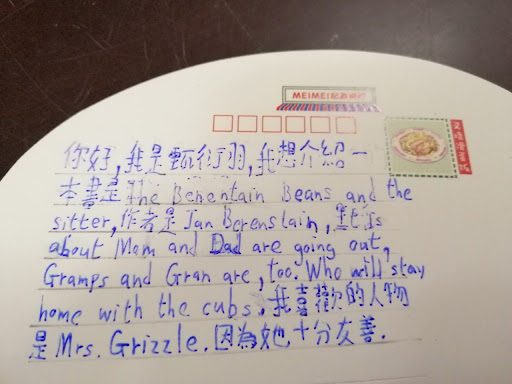 MEIMEI
你好,我是甄衍羽,我想介紹一
本書是The Benentain Beans and the
sitter,作者是Jan Berenslain, It is
about Mom and Dad are going out,
Gramps and Gran are, too. Who will stay
home with the cubs. 我喜歡的人物
是Mrs. Grizzle. 因為她十分友善.